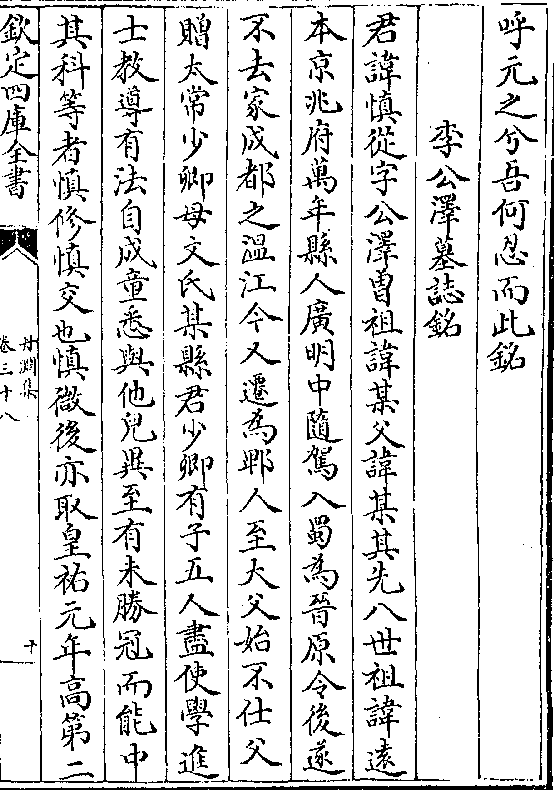 呼元之兮吾何忍而此銘
李公澤墓誌銘
君諱慎從字公澤曽祖諱某父諱某其先八世祖諱逺
本京兆府萬年縣人廣明中隨駕入蜀為晉原令後遂
不去家成都之温江今又遷為郫人至大父始不仕父
贈太常少卿母文氏某縣君少卿有子五人盡使學進
士教導有法自成童悉與他兒異至有未勝冠而能中
其科等者慎修慎交也慎微後亦取皇祐元年高第二
欽定四庫全書
丹淵集
卷三十八
十